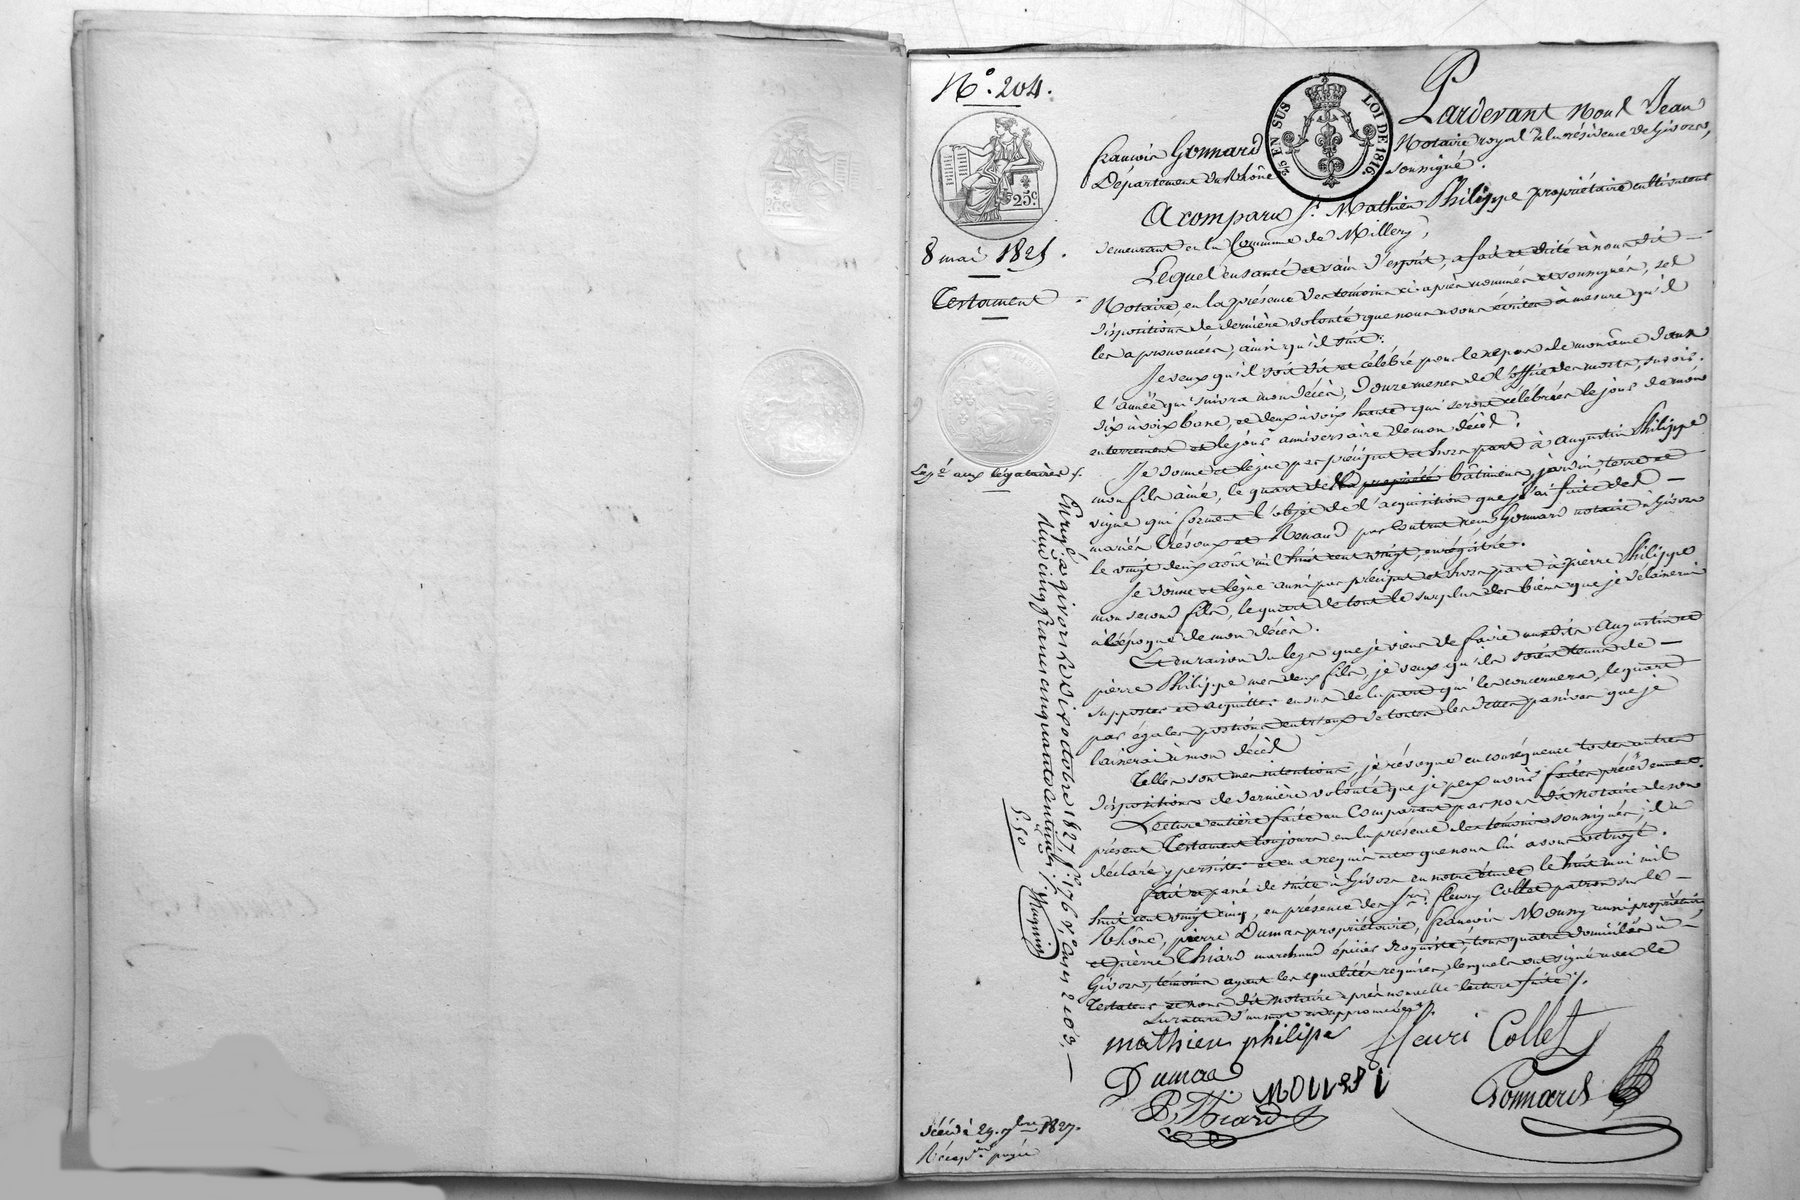 N.° 204.
25 EN SUS
LOI DE 1816.
25c
8 mai 1825.
Testament
Exp.é aux légataires /.
Pardevant Nous Jean
François Gonnard Notaire royal à la résidence de Givors,
Département du Rhône soussigné.
A comparu s.r Mathieu Philippe propriétaire cultivateur
demeurant en la Commune de Millery,
Lequel en santé et sain d'esprit, a fait et dicté à nous dit
Notaire, en la présence des témoins ci-après nommés et soussignés, ses
dispositions de dernière volonté que nous avons écrites à mesure qu'il
les a prononcées, ainsi qu'il suit:
Je veux qu'il soit dit et célébré pour le repos de mon âme dans
l'année qui suivra mon décès, Douze messes de l'office des morts, savoir:
dix à voix basse, et deux à voix haute qui seront célébrées le jour de mon
enterrement et le jour anniversaire de mon décès.
Je donne et lègue par préciput et hors part à Augustin Philippe
mon fils aîné, le quart de la propriété bâtimens, jardin, terre et
vigne qui forment l'objet de l'acquisition que j'ai faite des
mariés Trésoux et Renaud par Contrat reçu Gonnard notaire à Givors
le vingt deux août mil huit cent vingt, enregistré.
Je donne et lègue aussi par préciput et hors part à pierre Philippe
mon second fils, le quart de tout le surplus des biens que je délaisserai
à l'époque de mon décès.
Et en raison du legs que je viens de faire auxdits Augustin et
pierre Philippe mes deux fils, je veux qu'ils soient tenus de
supporter et acquitter en sus de la part qui les concernera, le quart
par égales portions entr'eux de toutes les dettes passives que je
laisserai à mon décès
Telles sont mes intentions, je révoque en conséquence toutes autres
dispositions de dernière volonté que je peux avoir faites précédemment.
Lecture entière faite au Comparant par nous dit notaire de son
présent Testament toujours en la présence des témoins soussignés, il a
déclaré y persister et en a requis acte que nous lui avons octroyé.
fait et passé de suite à Givors en notre étude le huit mai mil
huit cent vingt cinq, en présence des s.rs fleury Collet patron sur le
Rhône, pierre Dumas propriétaire, françois Moussy aussi propriétaire
et pierre Thiard marchand épicier droguiste, tous quatre domiciliés à
Givors, témoins ayant les qualités requises, lesquels ont signé avec le
Testateur et nous dit notaire après nouvelle lecture faite /.
La rature d'un mot est approuvée /.
mathieu philipe
Henri Collet
Dumas
P. Thiard
Gonnard
Enregé à givors le dix octobre 1827, f.o 176 v.o Cases 2 et 3,
Reçu cinq francs cinquante centimes /.
5.50
décédé le 29 7bre 1827.